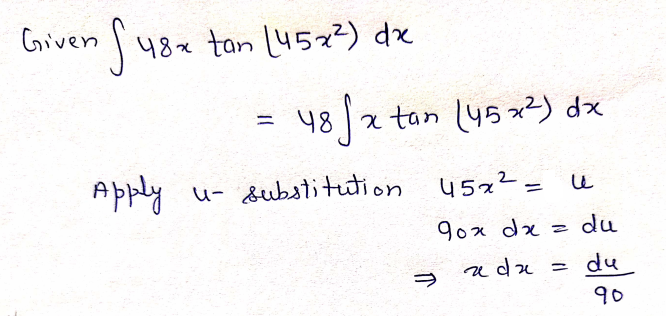 Given ∫ 48x tan (45x²) dx
= 48 ∫ x tan (45x²) dx
Apply u- substitution 45x² = u
90x dx = du
⇒ x dx = du/90